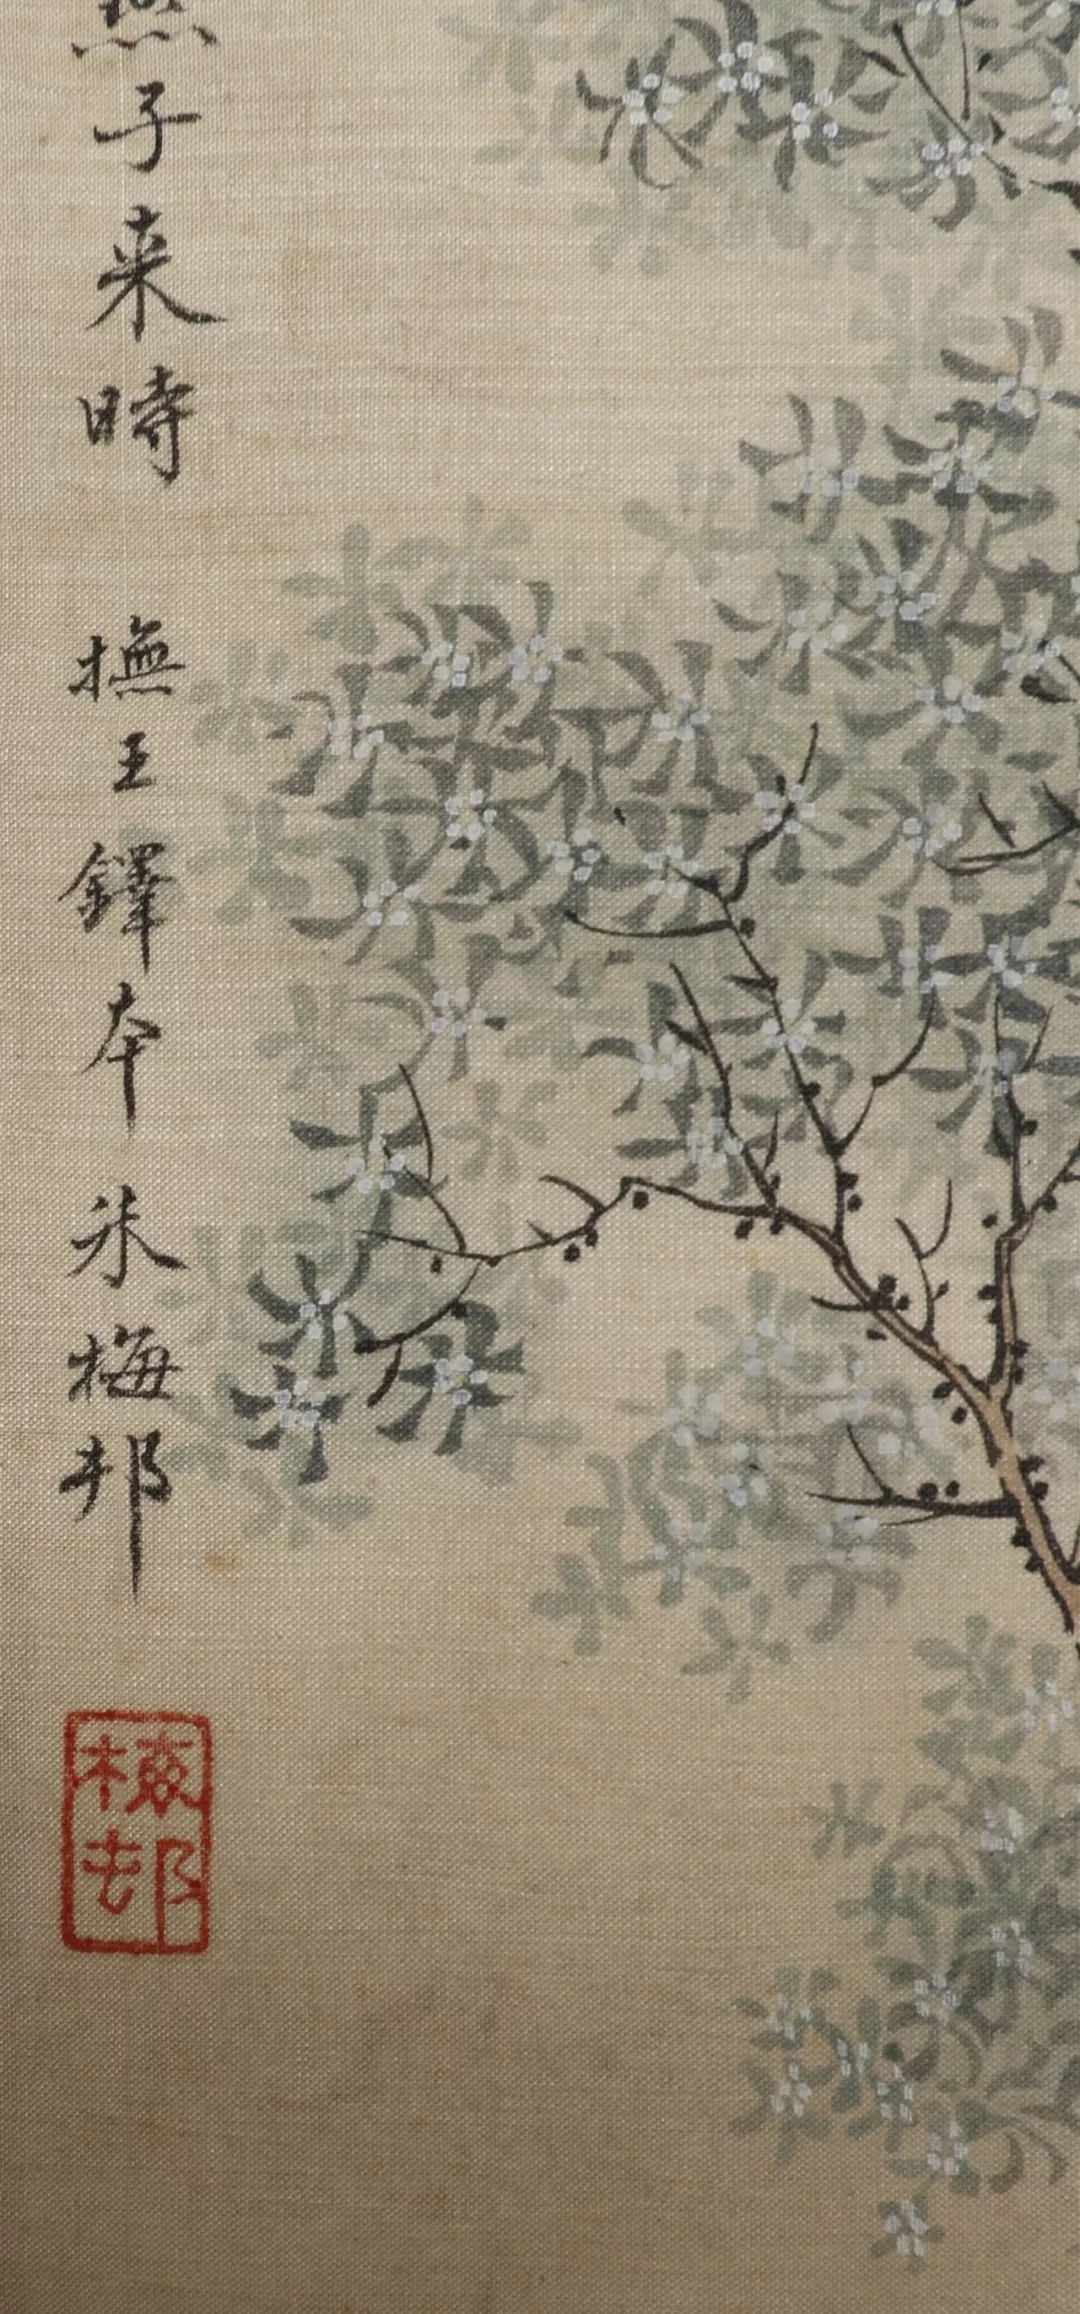 燕子来時 撫王鐸本 朱梅邨
梅邨